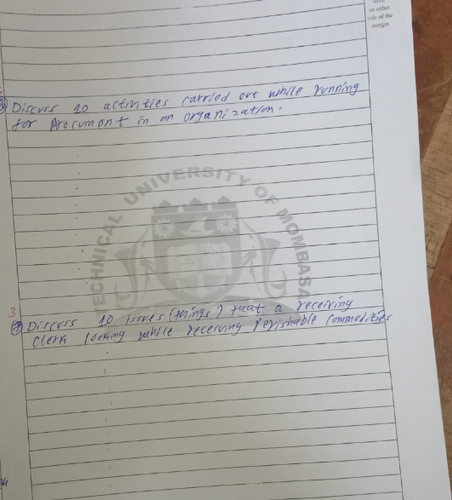 on either
side of the
margin
Discuss 10 activities carried out while running
for Procument in an organization.
TECHNICAL UNIVERSITY OF MOMBASA
3
Discuss 10 issues (things) that a receiving
Clerk looking while receiving Perishable Commodities